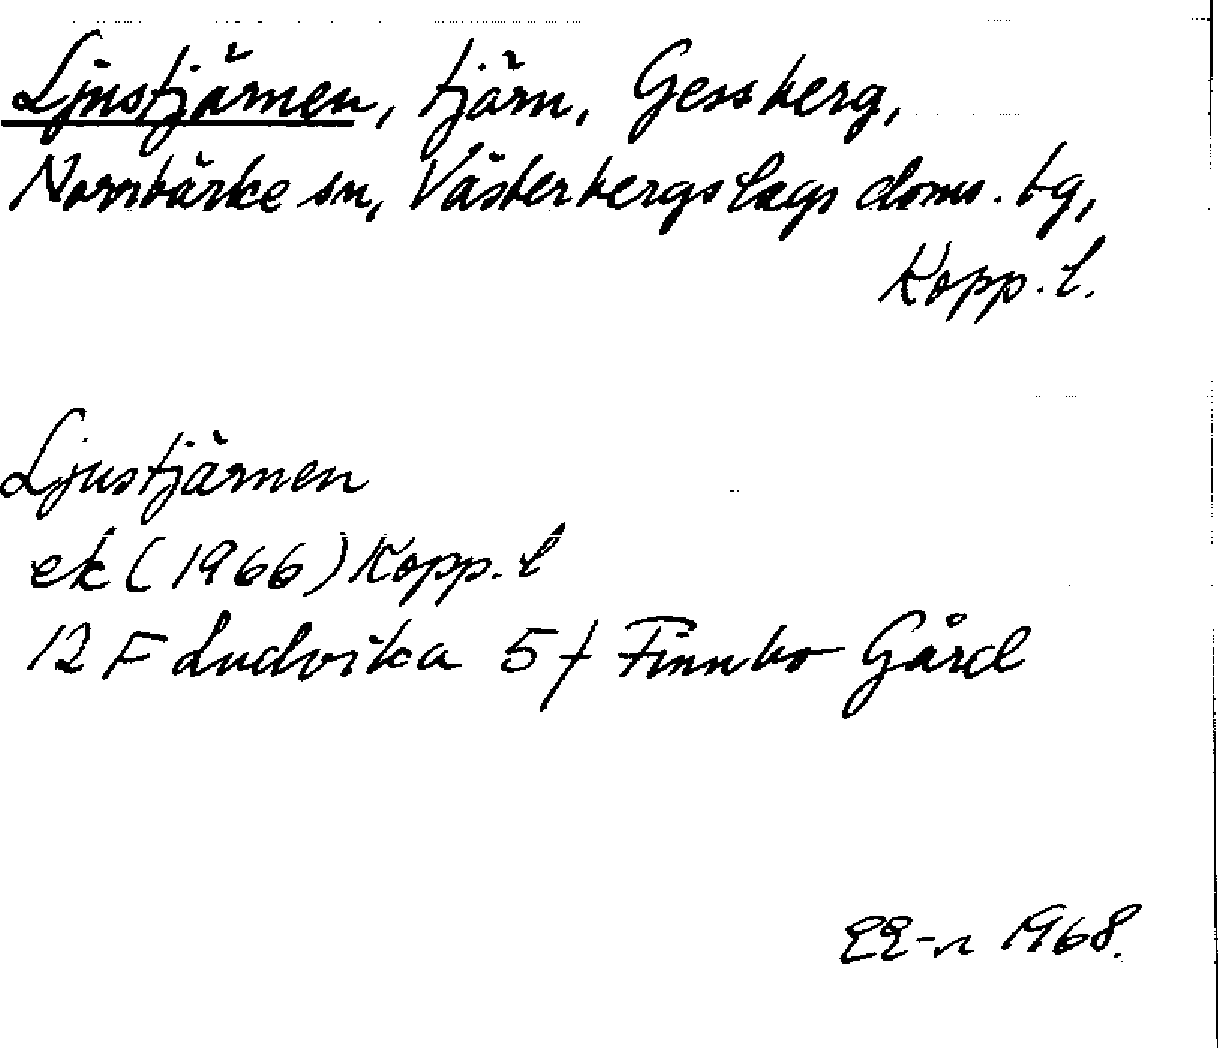 Ljustjärnen, tjärn, Gessberg,
Norrbärke sn, Västerbergslags doms. tg,
Kopp. l.
Ljustjärnen
ek (1966) Kopp. l
12 F Ludvika 5f Finnbo Gård
EE-n 1968.